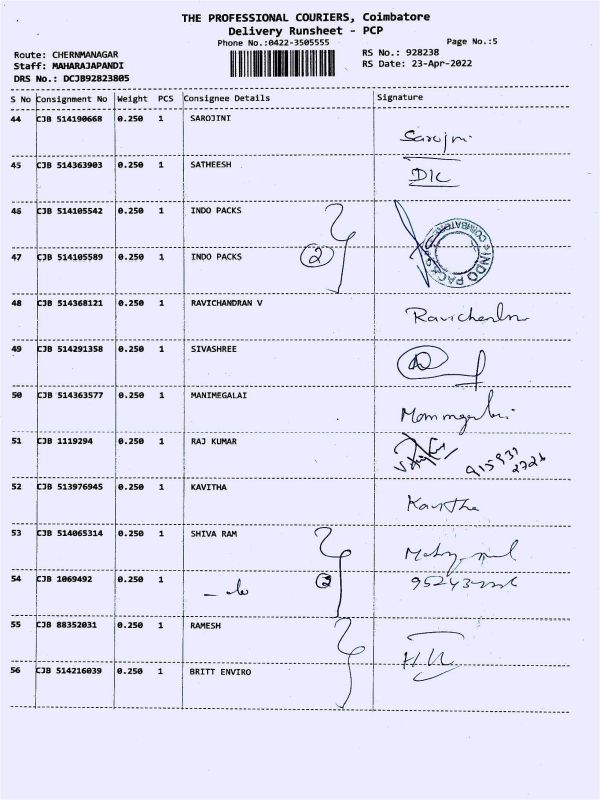 THE PROFESSIONAL COURIERS, Coimbatore
Delivery Runsheet - PCP
Phone No.:0422-3505555
Page No.:5
Route: CHERNMANAGAR
RS No.: 928238
Staff: MAHARAJAPANDI
RS Date: 23-Apr-2022
DRS No.: DCJB92823805
S No Consignment No Weight PCS Consignee Details Signature
44 CJB 514190668 0.250 1 SAROJINI
Sarojni
45 CJB 514363903 0.250 1 SATHEESH
46 CJB 514105542 0.250 1 INDO PACKS
COIMBATORE
INDO PACKS
47 CJB 514105589 0.250 1 INDO PACKS
2
48 CJB 514368121 0.250 1 RAVICHANDRAN V
49 CJB 514291358 0.250 1 SIVASHREE
50 CJB 514363577 0.250 1 MANIMEGALAI
51 CJB 1119294 0.250 1 RAJ KUMAR
52 CJB 513976945 0.250 1 KAVITHA
Kavitha
53 CJB 514065314 0.250 1 SHIVA RAM
54 CJB 1069492 0.250 1
2
55 CJB 88352031 0.250 1 RAMESH
56 CJB 514216039 0.250 1 BRITT ENVIRO